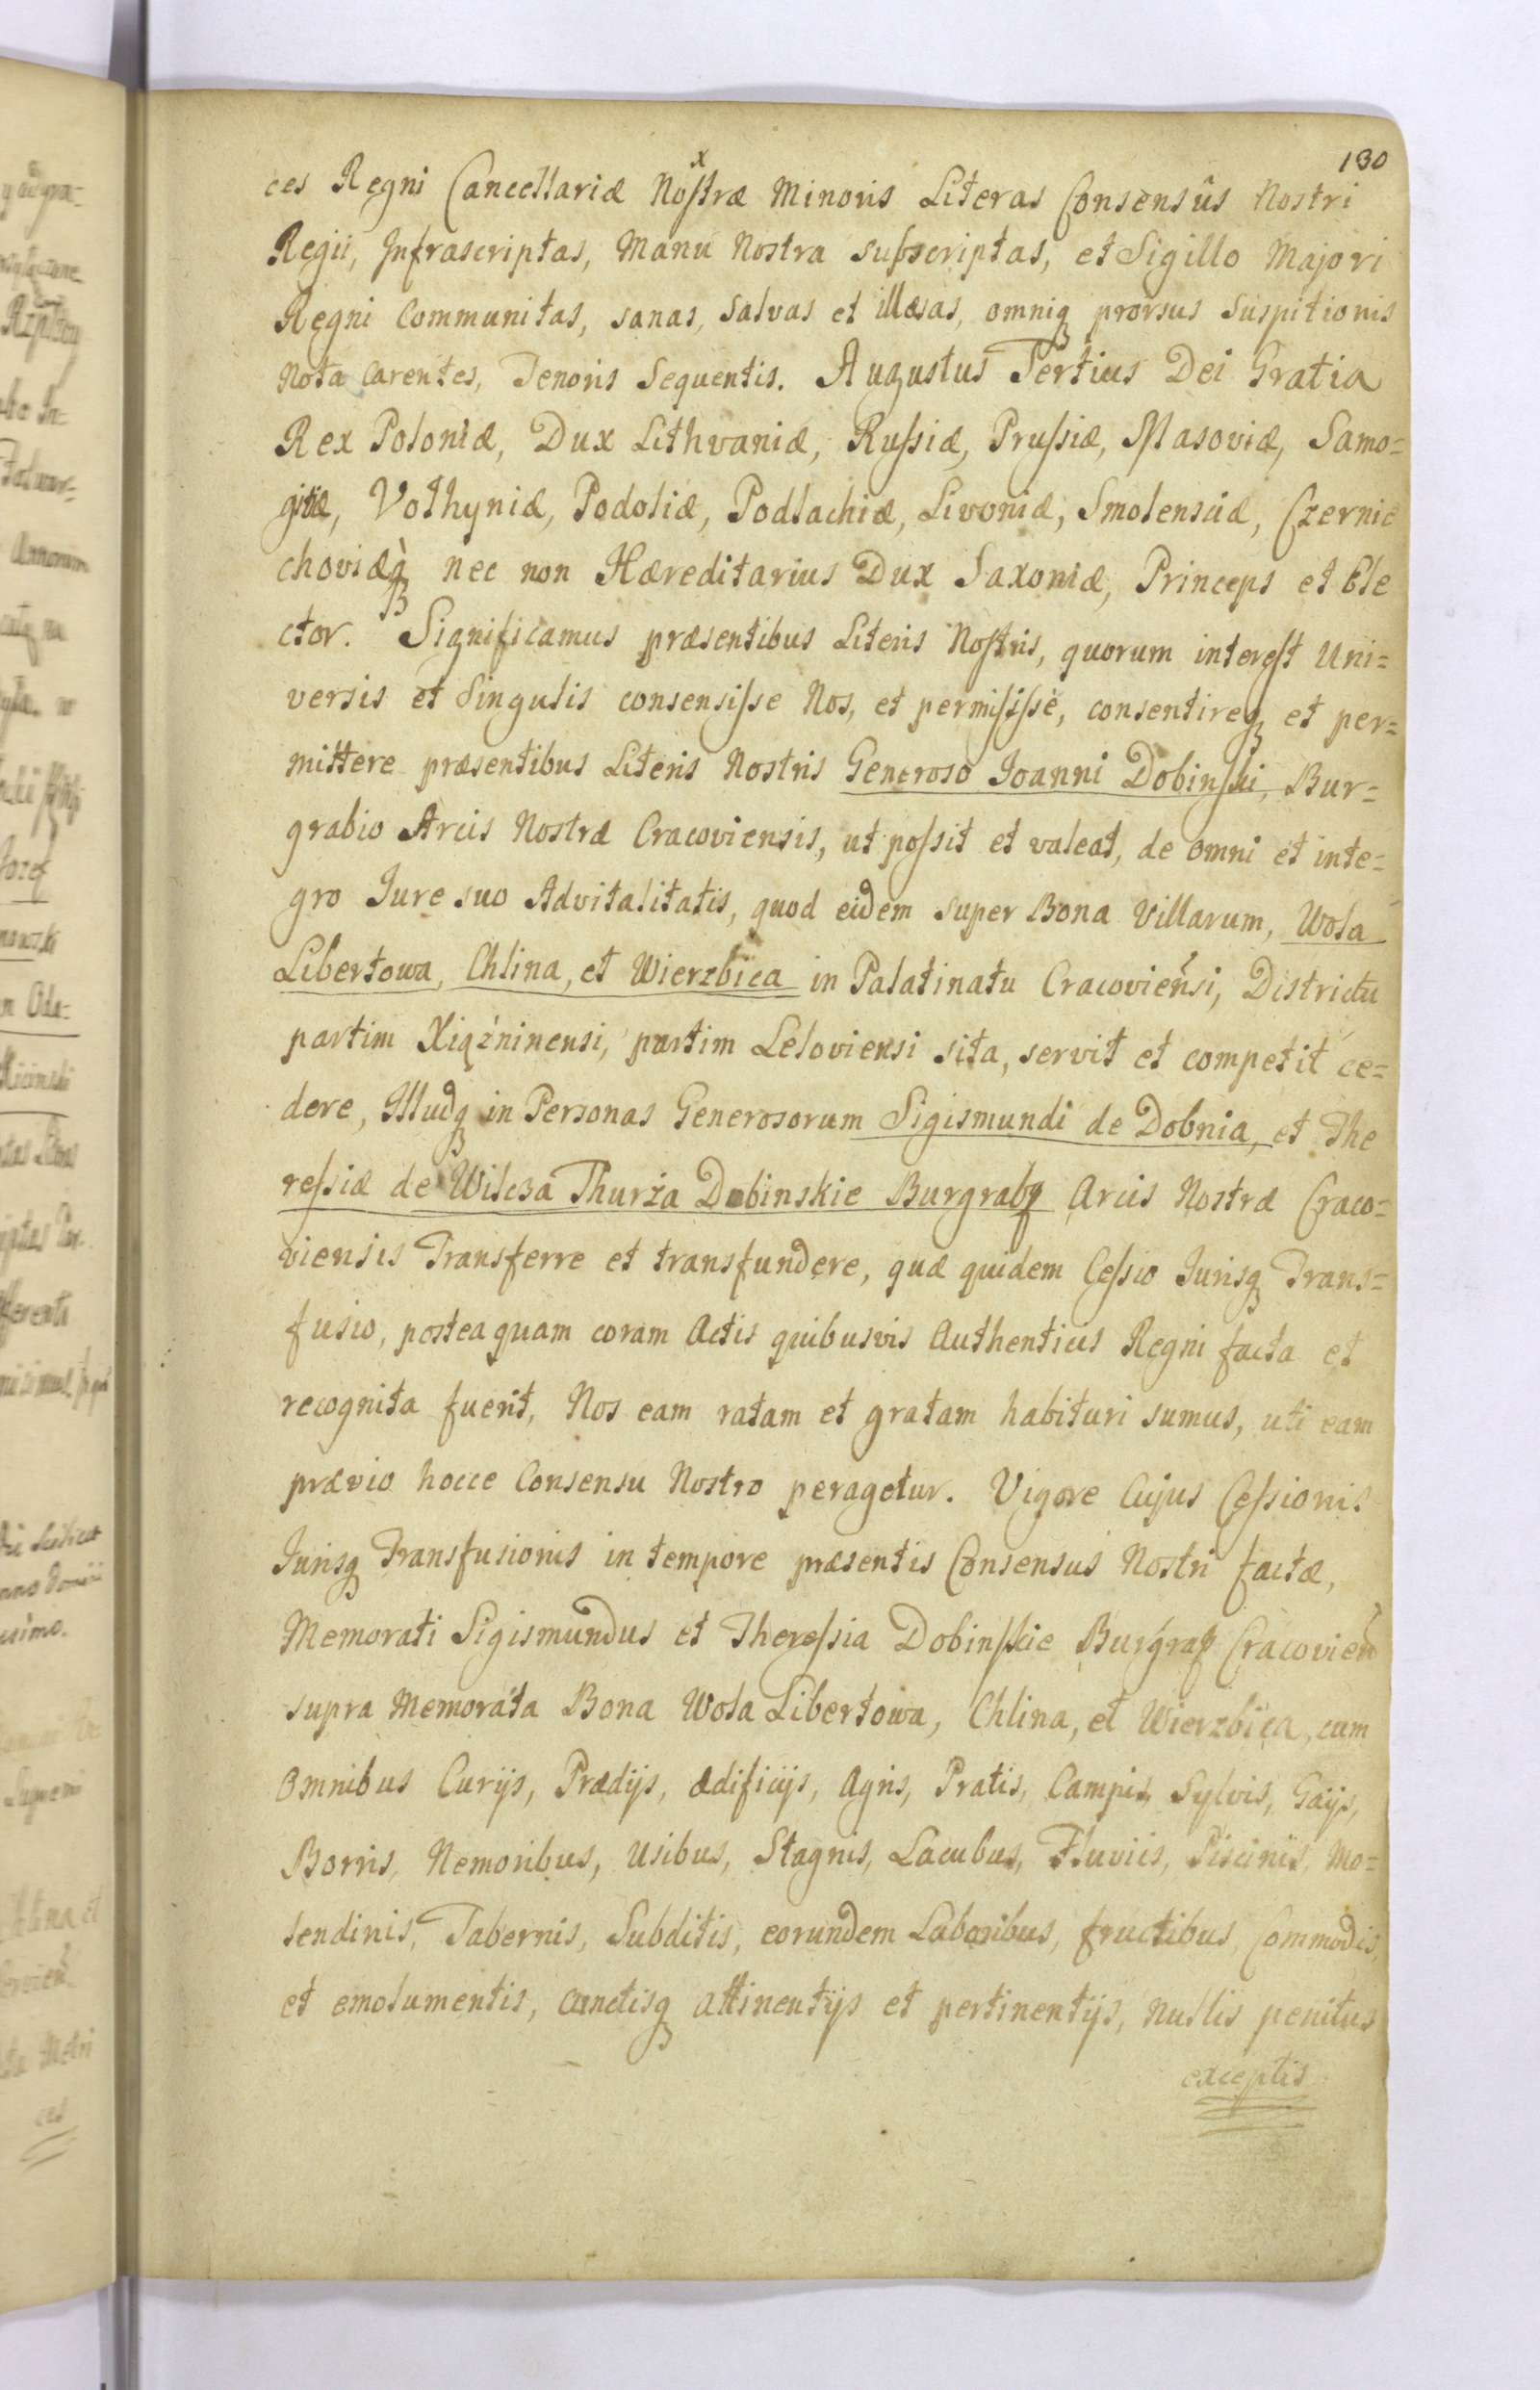 130
ces Regni Cancellariæ Noſtræ Minoris Literas Consensûs Nostri
Regii, Infrascriptas, Manu Nostra subscriptas, et Sigillo Majori
Regni Communitas, sanas, salvas et illæsas, omniq prorsus Suspitionis
Nota Carentes, Tenoris Sequentis. Augustus Tertius Dei Gratia
Rex Poloniæ, Dux Lithvaniæ, Ruſsiæ, Pruſsiæ, Masoviæ, Samo=
gitiæ, Volhyniæ, Podoliæ, Podlachiæ, Livoniæ, Smolensciæ, Czernie
choviæq̀ nec non Hæreditarius Dux Saxoniæ, Princeps et Ele
ctor. Significamus præsentibus Literis Noſtris, quorum intereſt Uni=
versis et Singulis consensiſse Nos, et permiſsiſse, consentireq et per=
mittere præsentibus Literis Nostris Generoso Joanni Dobinſki, Bur=
grabio Arcis Nostræ Cracoviensis, ut poſsit et valeat, de omni et inte=
gro Jure suo Advitalitatis, quod eidem super Bona Villarum, Wola
Libertowa, Chlina, et Wierzbica in Palatinatu Cracovieñsi, Districtu
partim Xiążninensi, partim Leloviensi sita, servit et competit ce=
dere, Illudq in Personas Generosorum Sigismundi de Dobnia, et The
reſsiæ de Wilcza Thurża Dobinskie Burgraby Arcis Nostræ Craco=
viensis Transferre et transfundere, quæ quidem Ceſsio Jurisq Trans=
fusio, posteaquam coram Actis quibusvis Authenticis Regni facta et
recognita fuerit, Nos eam ratam et gratam habituri sumus, uti eam
prævio hocce Consensu Nostro peragetur. Vigore Cujus Ceſsionis
Jurisq Transfusionis in tempore præsentis Consensus Nostri factæ,
Memorati Sigismundus et Thereſsia Dobinſkie Burgraf Cracovieñ
supra Memorata Bona Wola Libertowa, Chlina, et Wierzbica, cum
Omnibus Curijs, Prædijs, ædificijs, Agris, Pratis, Campis, Sylvis, Gaijs,
Borris, Nemoribus, Usibus, Stagnis, Lacubus, Fluviis, Piscinis, Mo=
lendinis, Tabernis, Subditis, eorundem Laboribus, fructibus, Commodis,
et emolumentis, cunctisq attinentijs et pertinentijs, nullis penitus
exceptis